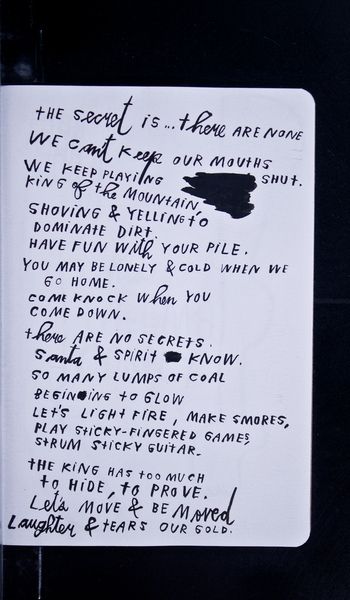 THE secret IS... there ARE NONE
WE can't KEEP OUR MOUTHS
SHUT.
WE KEEP PLAYING
KING of the MOUNTAIN,
SHOVING & YELLING TO
DOMINATE DIRT.
HAVE FUN With YOUR PILE.
YOU MAY BE LONELY & COLD WHEN WE
GO HOME.
COME KNOCK When YOU
COME DOWN.
there ARE NO SECRETS.
Santa & SPIRIT KNOW.
SO MANY LUMPS OF COAL
BEGINNING TO GLOW
LET'S LIGHT FIRE, MAKE SMORES,
PLAY STICKY-FINGERED GAMES,
STRUM STICKY GUITAR.
THE KING HAS TOO MUCH
TO HIDE, TO PROVE.
Let's MOVE & BE Moved
Laughter & TEARS OUR GOLD.